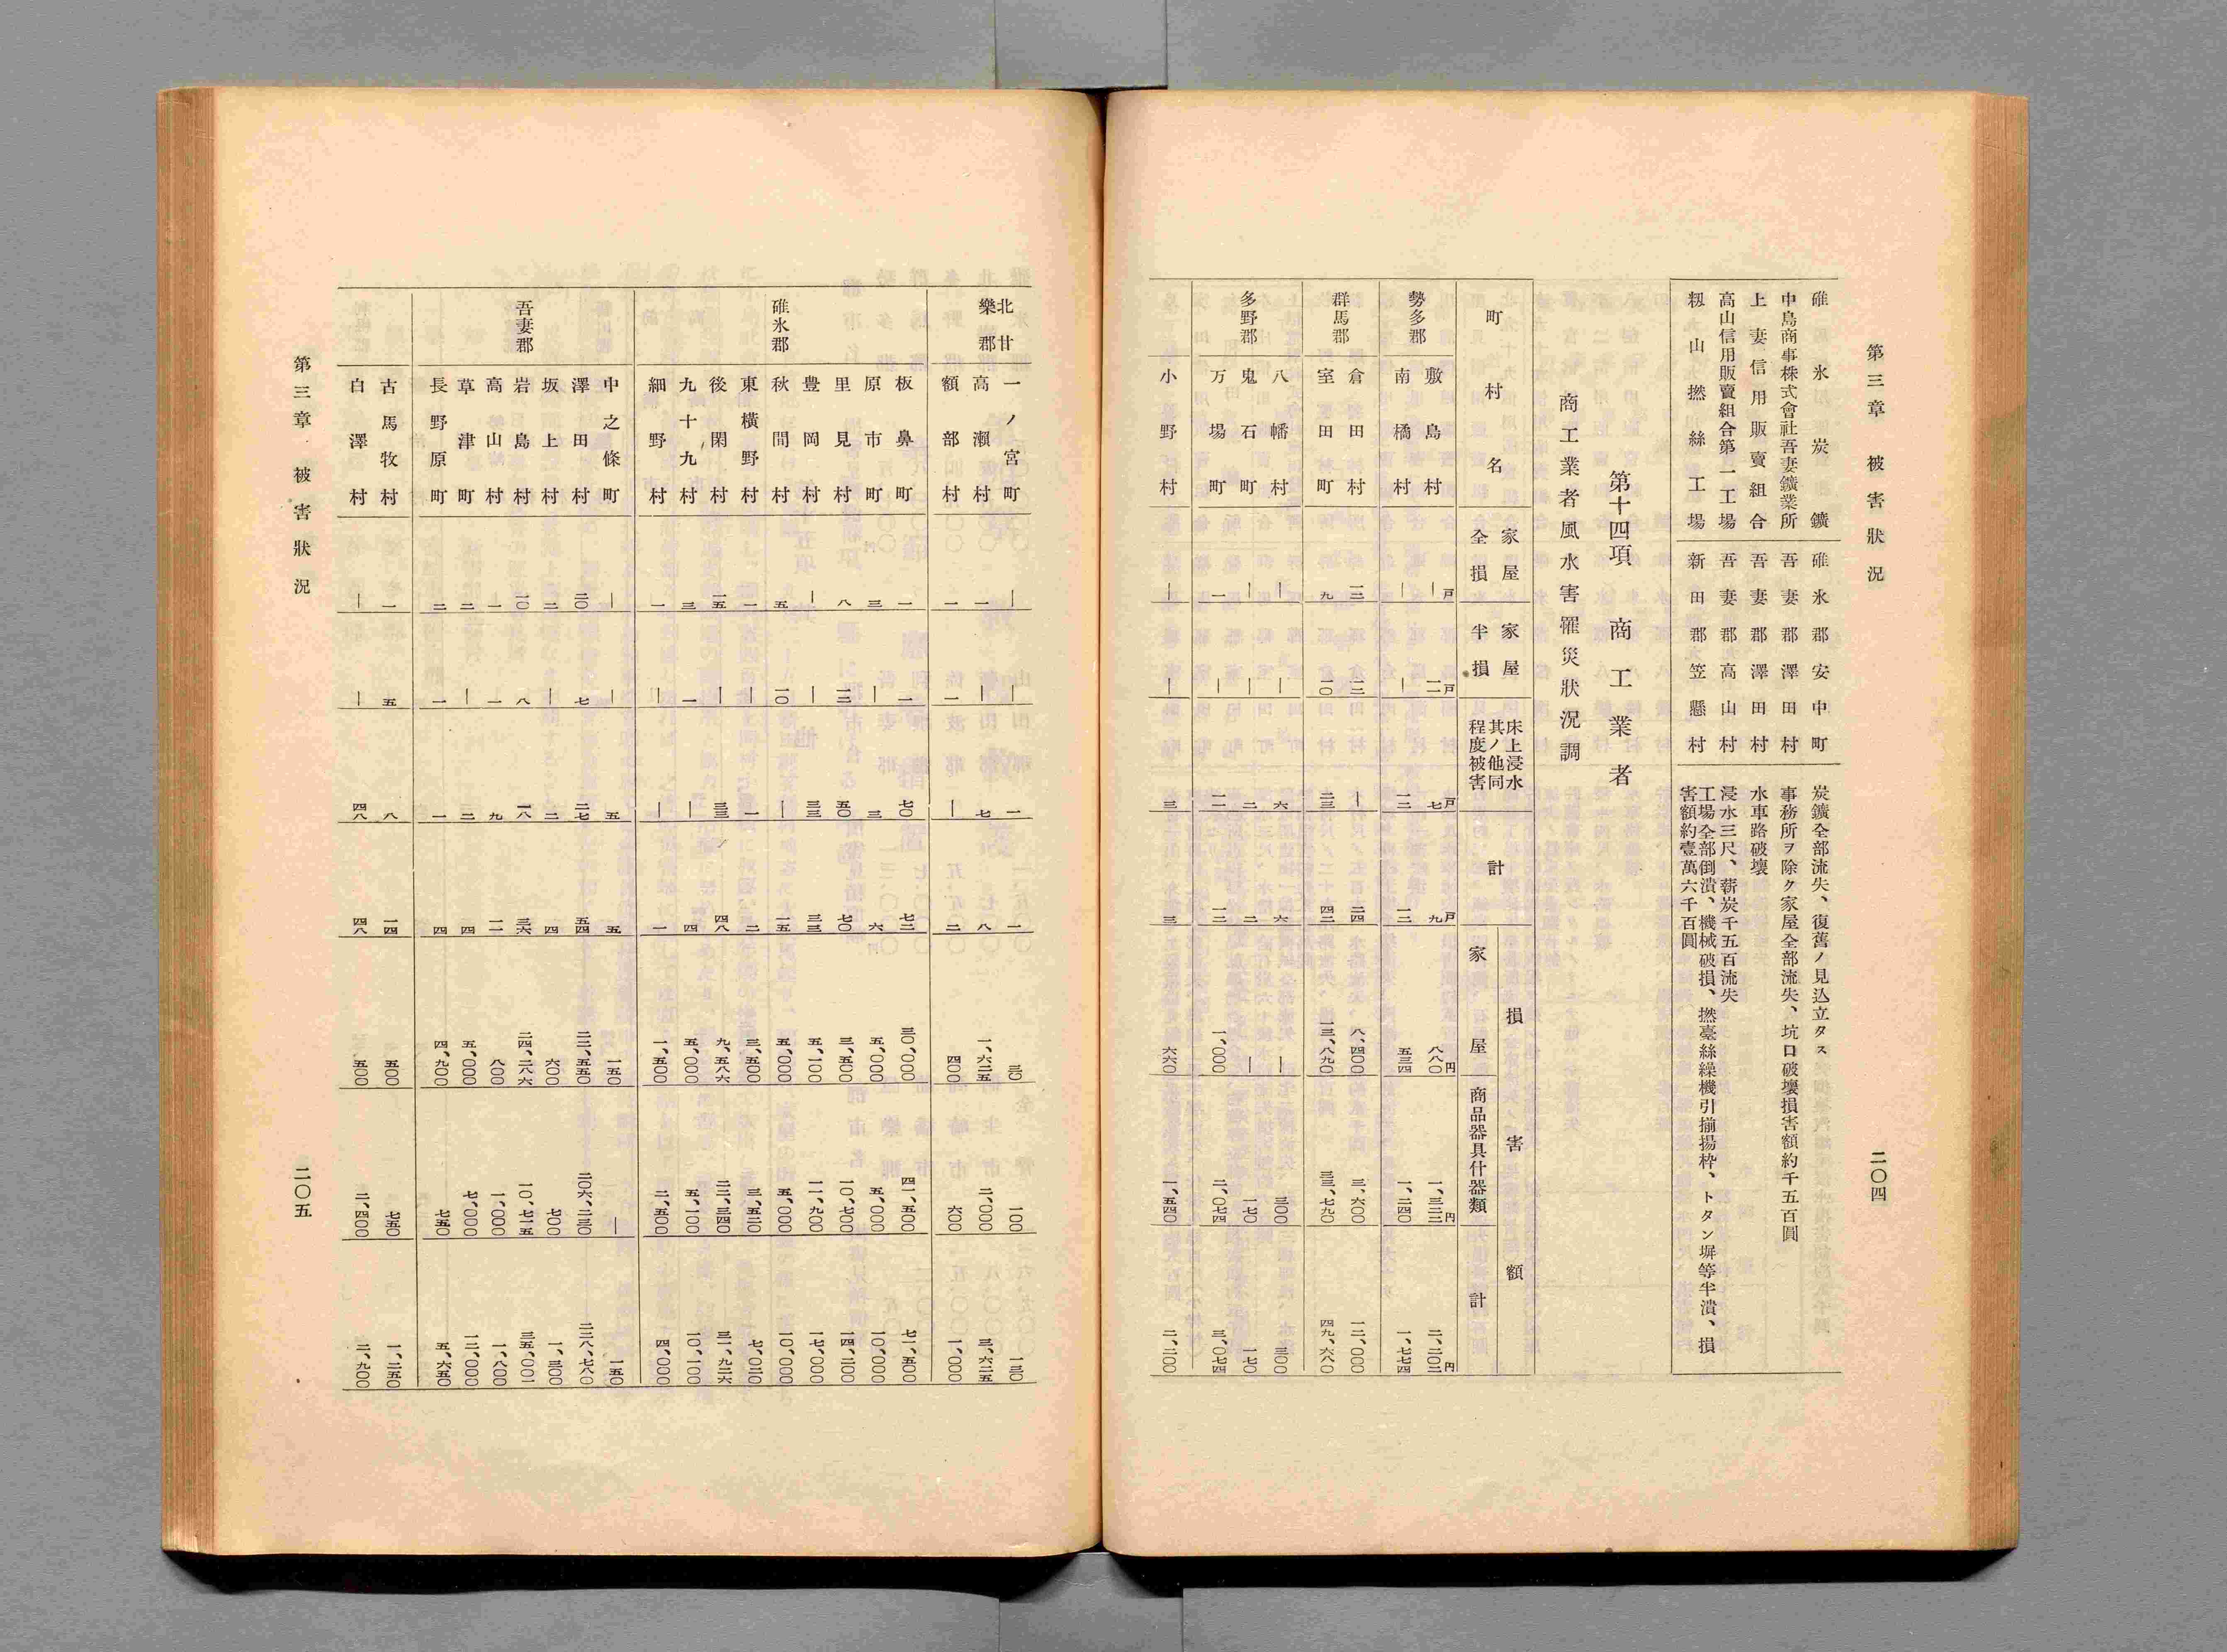 第三章 被害狀況
二〇四
碓氷炭鑛 碓氷郡安中町 炭鑛全部流失、復舊ノ見込立タス
中島商事株式會社吾妻鑛業所 吾妻郡澤田村 事務所ヲ除ク家屋全部流失、坑口破壞損害額約千五百圓
上妻信用販賣組合 吾妻郡澤田村 水車路破壞
高山信用販賣組合第一工場 吾妻郡高山村 浸水三尺、薪炭千五百流失
籾山撚絲工場 新田郡笠懸村 工場全部倒潰、機械破損、撚臺絲繰機引揃揚枠、トタン塀等半潰、損
害額約壹萬六千百圓
第十四項 商工業者
商工業者風水害罹災狀況調
町村名 家屋全損 家屋半損 床上浸水其ノ他同程度被害 計 損害額 家屋 商品器具什器類 計
勢多郡 敷島村 ー戸 二戸 七戸 九戸 八八〇円 一、三二二円 二、二〇二円
南橘村 ー ー 一二 一二 五三四 一、二四〇 一、七七四
群馬郡 倉田村 一二 一二 ー 二四 八、四〇〇 三、六〇〇 一二、〇〇〇
室田町 九 一〇 二三 四二 一三、八九〇 三三、七九〇 四九、六八〇
多野郡 八幡村 ー ー 六 六 ー 三〇〇 三〇〇
鬼石町 ー ー 二 二 ー 一七〇 一七〇
万場町 一 ー 一一 一二 一、〇〇〇 二、〇七四 三、〇七四
小野村 ー ー 三 三 六六〇 一、五四〇 二、二〇〇
北甘樂郡 一ノ宮町 ー ー 一 一 三〇 一〇〇 一三〇
高瀨村 一 ー 七 八 一、六二五 二、〇〇〇 三、六二五
額部村 一 一 ー 二 四〇〇 六〇〇 一、〇〇〇
碓氷郡 板鼻町 一 一 七〇 七二 三〇、〇〇〇 四一、五〇〇 七一、五〇〇
原市町 三 ー 三 六 五、〇〇〇 五、〇〇〇 一〇、〇〇〇
里見村 八 一二 五〇 七〇 三、五〇〇 一〇、七〇〇 一四、二〇〇
豊岡村 ー ー 三三 三三 五、一〇〇 一一、九〇〇 一七、〇〇〇
秋間村 五 一〇 ー 一五 五、〇〇〇 五、〇〇〇 一〇、〇〇〇
東橫野村 一 ー 一 二 三、五〇〇 三、五二〇 七、〇二〇
後閑村 一五 ー 三三 四八 九、五八六 二二、三四〇 三一、九二六
九十九村 三 一 ー 四 五、〇〇〇 五、一〇〇 一〇、一〇〇
細野村 一 ー ー 一 一、五〇〇 二、五〇〇 四、〇〇〇
吾妻郡 中之條町 ー ー 五 五 一五〇 ー 一五〇
澤田村 二〇 七 二七 五四 二二、五五〇 二〇六、二三〇 二二八、七八〇
坂上村 二 ー 二 四 六〇〇 七〇〇 一、三〇〇
岩島村 一〇 八 一八 三六 二四、二八六 一〇、七一五 三五、〇〇一
高山村 一 一 九 一一 八〇〇 一、〇〇〇 一、八〇〇
草津町 二 ー 二 四 五、〇〇〇 七、〇〇〇 一二、〇〇〇
長野原町 二 一 一 四 四、九〇〇 七五〇 五、六五〇
古馬牧村 一 五 八 一四 五〇〇 七五〇 一、二五〇
白澤村 ー ー 四八 四八 五〇〇 二、四〇〇 二、九〇〇
第三章 被害狀況
二〇五